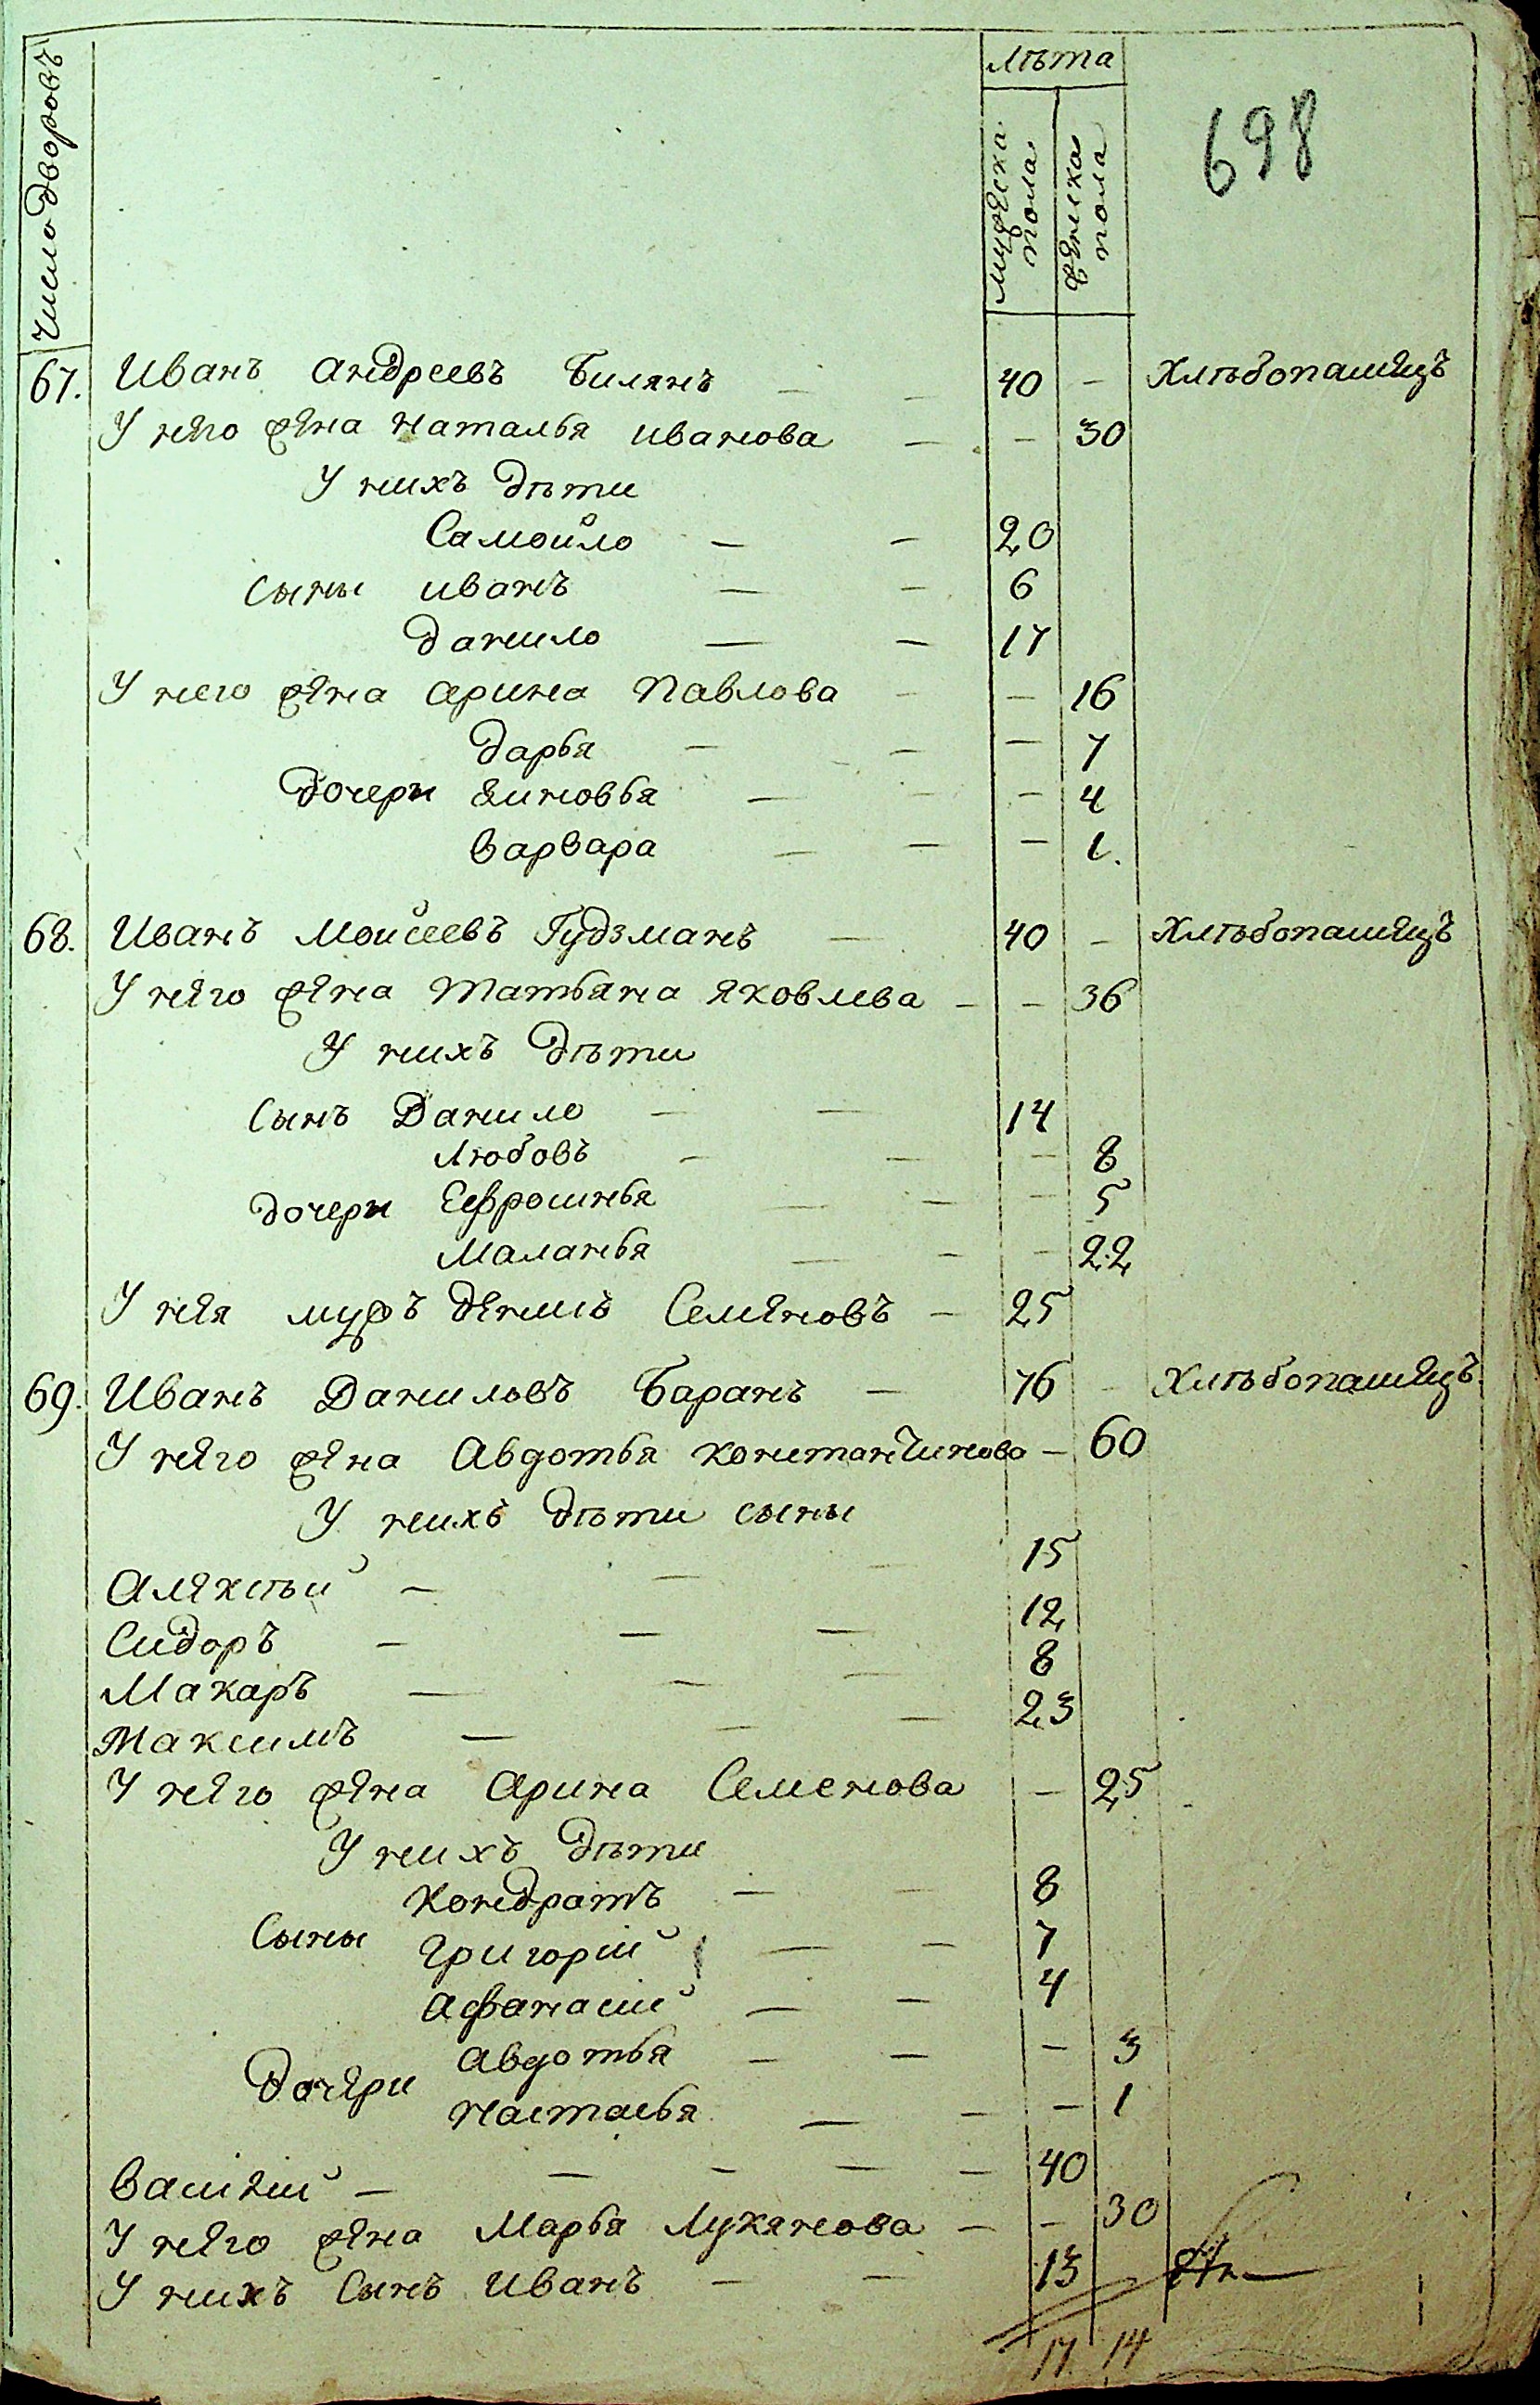 Число дворовъ
лѣта
мужеска пола
женска пола
698
67. Иванъ Андреевъ Билянъ — 40 — Хлѣбопашецъ
У него жена Наталья Иванова — — 30
У нихъ дѣти
Самойло — — 20
сыны иванъ — — 6
данило — — 17
У него жена арина Павлова — — 16
дарья — — — 7
дочери Зиновья — — — 4
варвара — — — 1.
68. Иванъ Моисеевъ Гудзманъ — 40 — Хлѣбопашецъ
У него жена Татьяна Яковлева — — 36
У нихъ дѣти
Сынъ Данило — — 14
Любовъ — — — 8
дочери Еефросинья — — — 5
Маланья — — — 22
У нея мужъ денисъ Семеновъ — 25
69. Иванъ Даниловъ Баранъ — 76 — Хлѣбопашецъ
У него жена Авдотья константинова — 60
У нихъ дѣти сыны
Алексѣй — — — 15
Сидоръ — — — 12
Макаръ — — — 8
Максимъ — — — 23
У него жена Арина Семенова — 25
У нихъ дѣти
Кондратъ — — 8
Сыны Григорій — — 7
Афанасій — — 4
Авдотья — — — 3
Дочери Настасья — — — 1
Василій — — — — — 40
У него жена Марья Лукянова — — 30
У нихъ Сынъ Иванъ — — 13
17 14